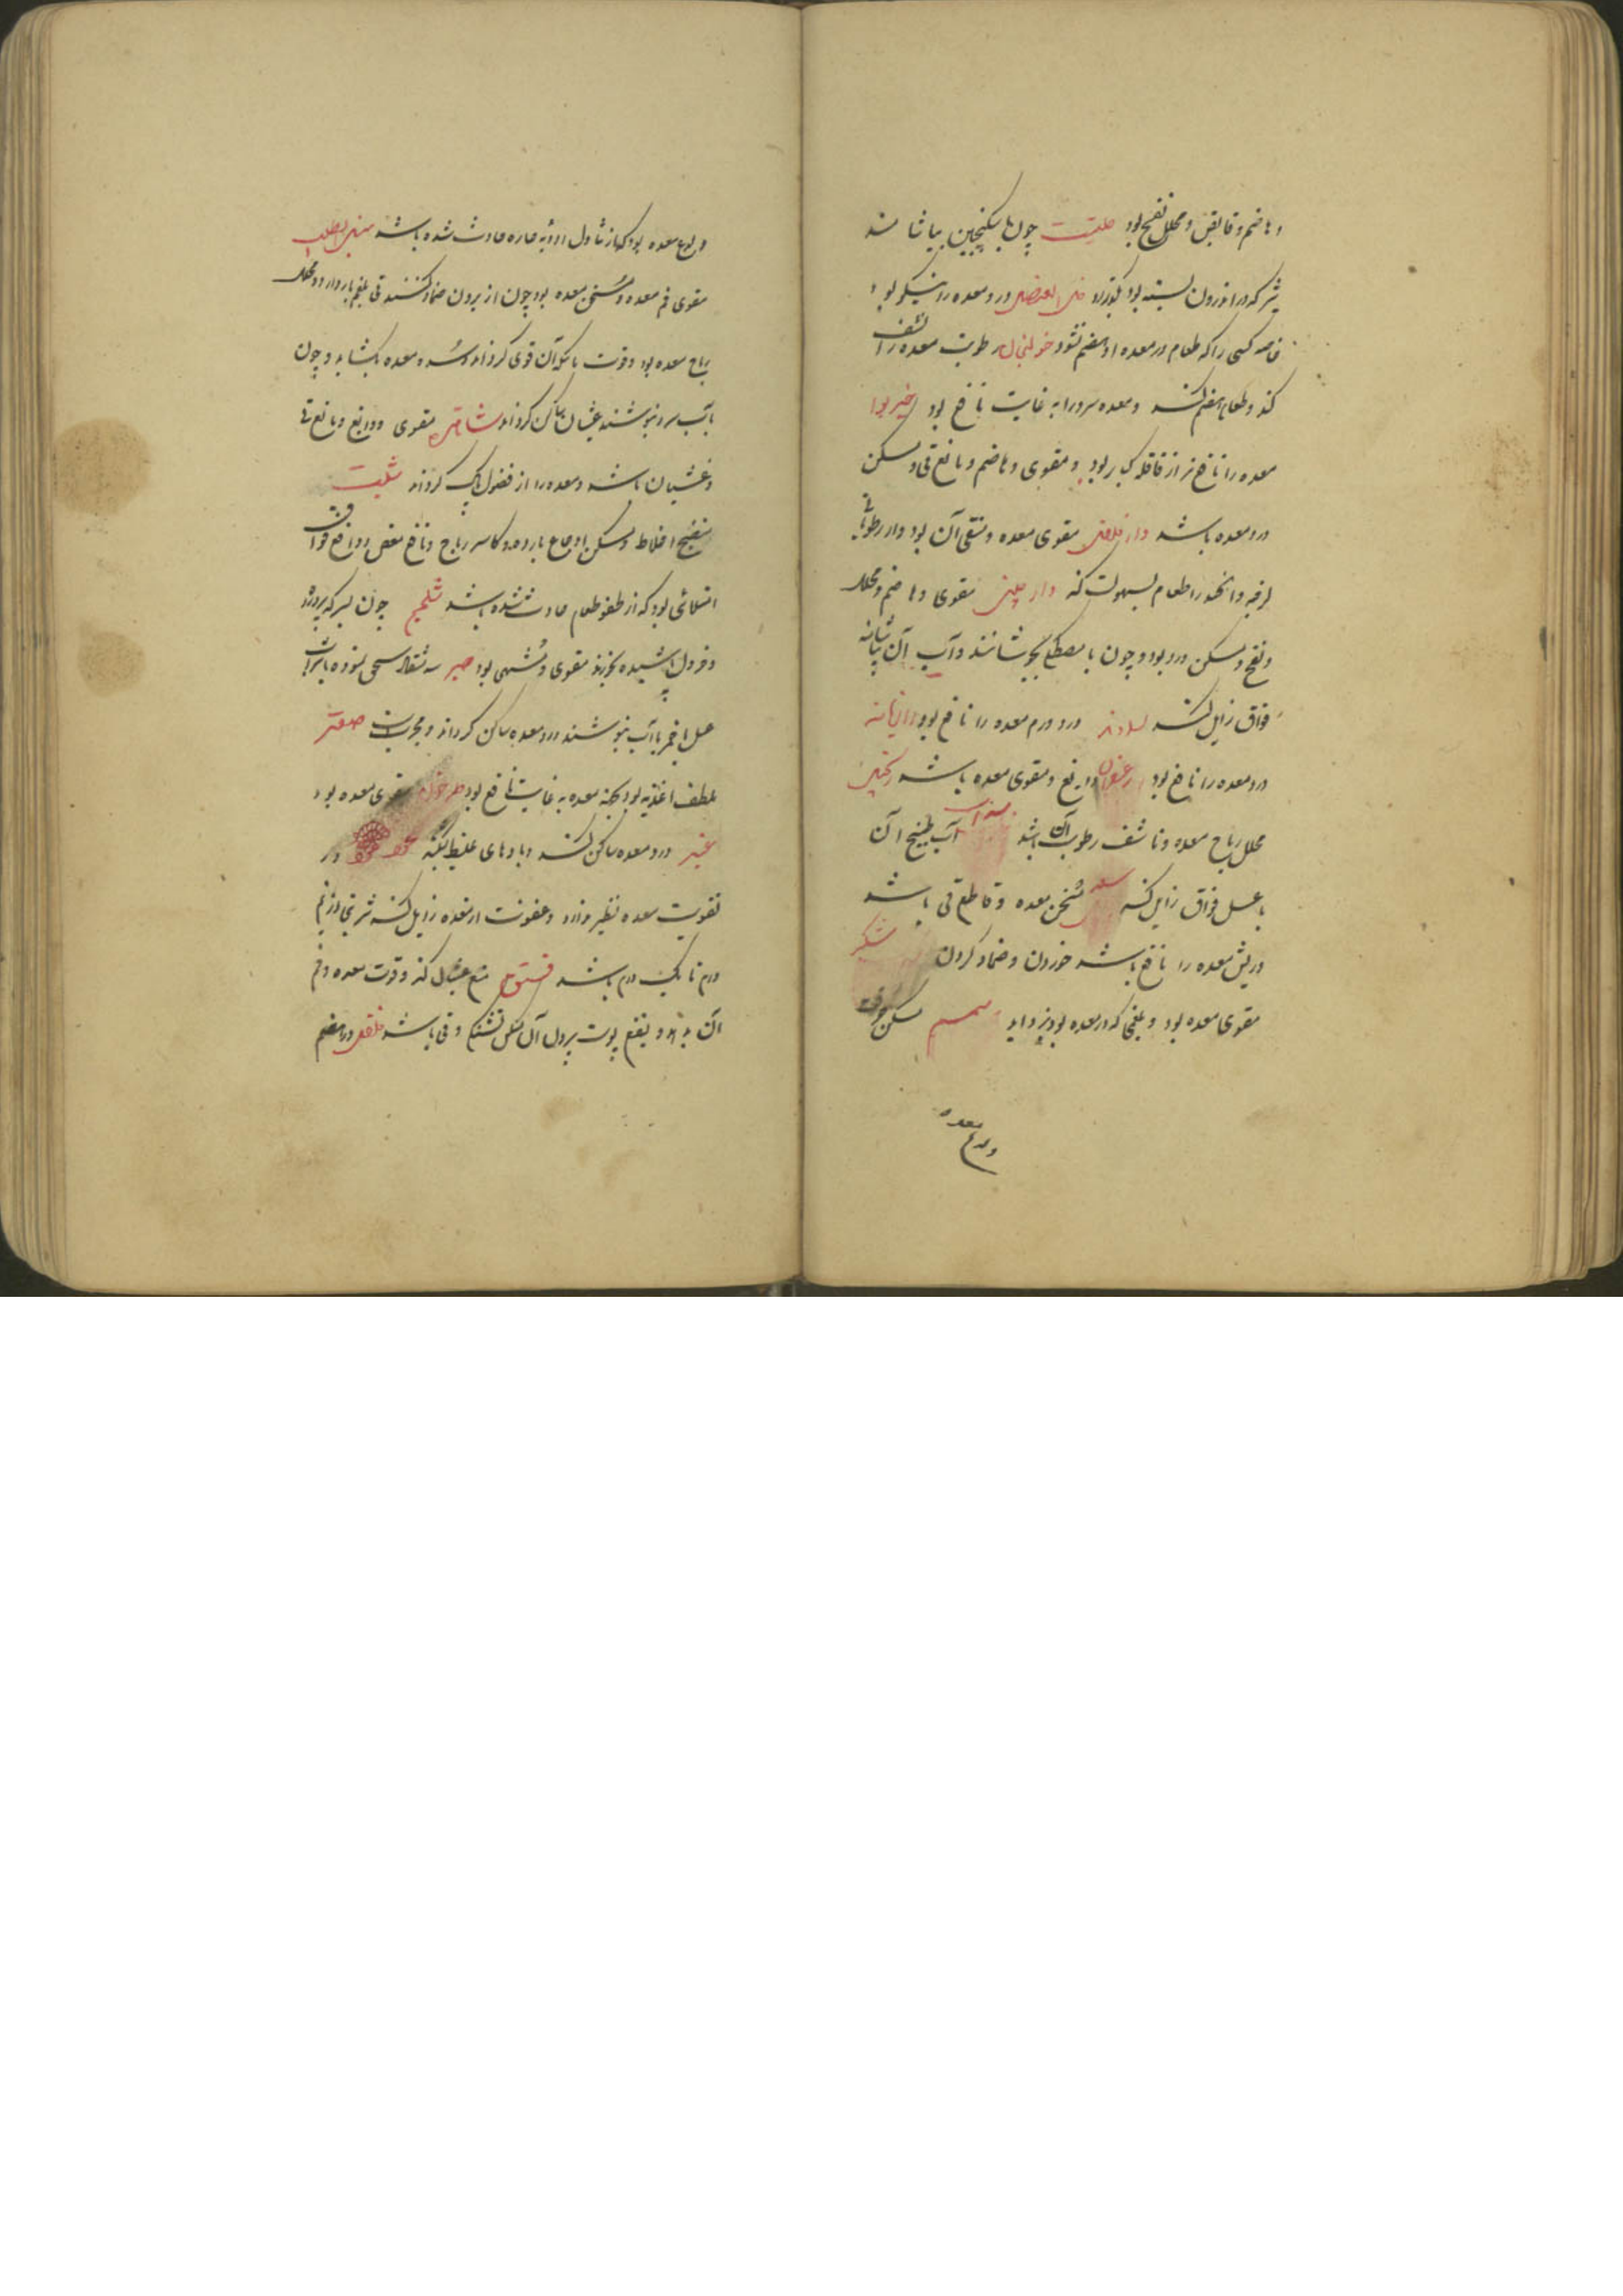 و هاضم و قابض و محلل نفخ بود حلتیت چون با سکنجبین بیاشامند
شیر که در اندرون بسته بود بگذراند خل العنصل درد معده را نیکو بود
خاصه کسی را که طعام در معده او هضم نشود خولنجان رطوبت معده را نشف
کند و طعام هضم کند و معده سرد را به غایت نافع بود خیربوا
معده را نافع‌تر از قاقله کبار بود و مقوی و هاضم و مانع قی و مسکن
درد معده باشد دارفلفل مقوی معده و منقی آن بود و از رطوباتی
لزجه و انحدار طعام بسهولت کند دارچینی مقوی و هاضم و محلل
و نفخ و مسکن درد بود و چون با مصطکی بجوشانند و آب آن بیاشامند
فواق زایل کند درد و ورم معده را نافع بود رازیانه
درد معده را نافع بود زعفران دابغ و مقوی معده باشد زنجبیل
محلل ریاح معده و ناشف رطوبت آن باشد سداب آب طبیخ آن
با عسل فواق زایل کند سعد مسخن معده و قاطع قی باشد
و ریش معده را نافع باشد خوردن و ضماد کردن شکر
مقوی معده بود و بلغمی که در معده بود بزداید سمسم مسکن حرقت
و لدع معده
و لدع معده بود که از تناول ادویه حاره حادث شده باشد سنبل الطیب
مقوی فم معده و مسخن معده بود چون از برون ضماد کنند قی بلغم باز دارد و محلل
ریاح معده بود و قوت باکوآن قوی گرداند و سده معده بگشاید و چون
با آب سرد بنوشند غثیان ساکن گرداند شاهتره مقوی و دابغ و مانع قی
و غثیان باشد و معده را از فضول پاک گرداند شلیت
منضج اخلاط و مسکن اوجاع بارده و کاسر ریاح و نافع مغص و دافع فواق
امتلائی بود که از طفو طعام حادث شده باشد شلجم چون بسرکه پرورند
و خردل پاشیده بخورند مقوی و مشهی بود صبر سه مثقال سحق نموده با شراب
عسل با خمر یا آب بنوشند درد معده ساکن گرداند و مجربست صعتر
ملطف اغذیه بود و بجهة معده به غایت نافع بود طرخون مقوی معده بود
عنبر درد معده ساکن کند و بادهای غلیظ بشکند عود در
تقویت معده نظیر ندارد و عفونت از معده زایل کند شربتی از نیم
درم تا یک درم باشد فستق منع غثیان کند و قوت معده و فم
آن بدهد و نقع پوست برون آن مسکن تشنگی و قی باشد فلفل در هضم